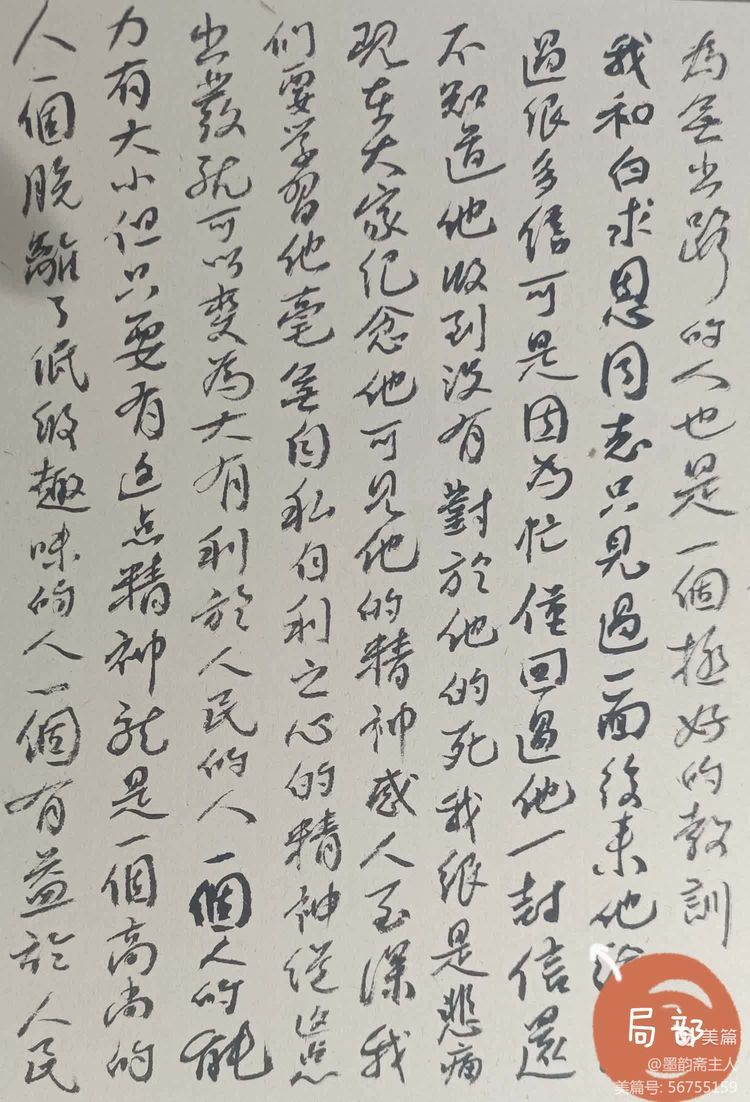 為無出路的人也是一個極好的教訓
我和白求恩同志只見過一面後来他給
過很多信可是因為忙僅回過他一封信還
不知道他收到没有對於他的死我很是悲痛
現在大家纪念他可見他的精神感人至深我
们要学習他毫無自私自利之心的精神從这点
出發就可以變為大有利於人民的人一個人的能
力有大小但只要有这点精神就是一個高尚的
人一個脱離了低级趣味的人一個有益於人民
局部
美篇
@墨韵斋主人
美篇号: 56755159